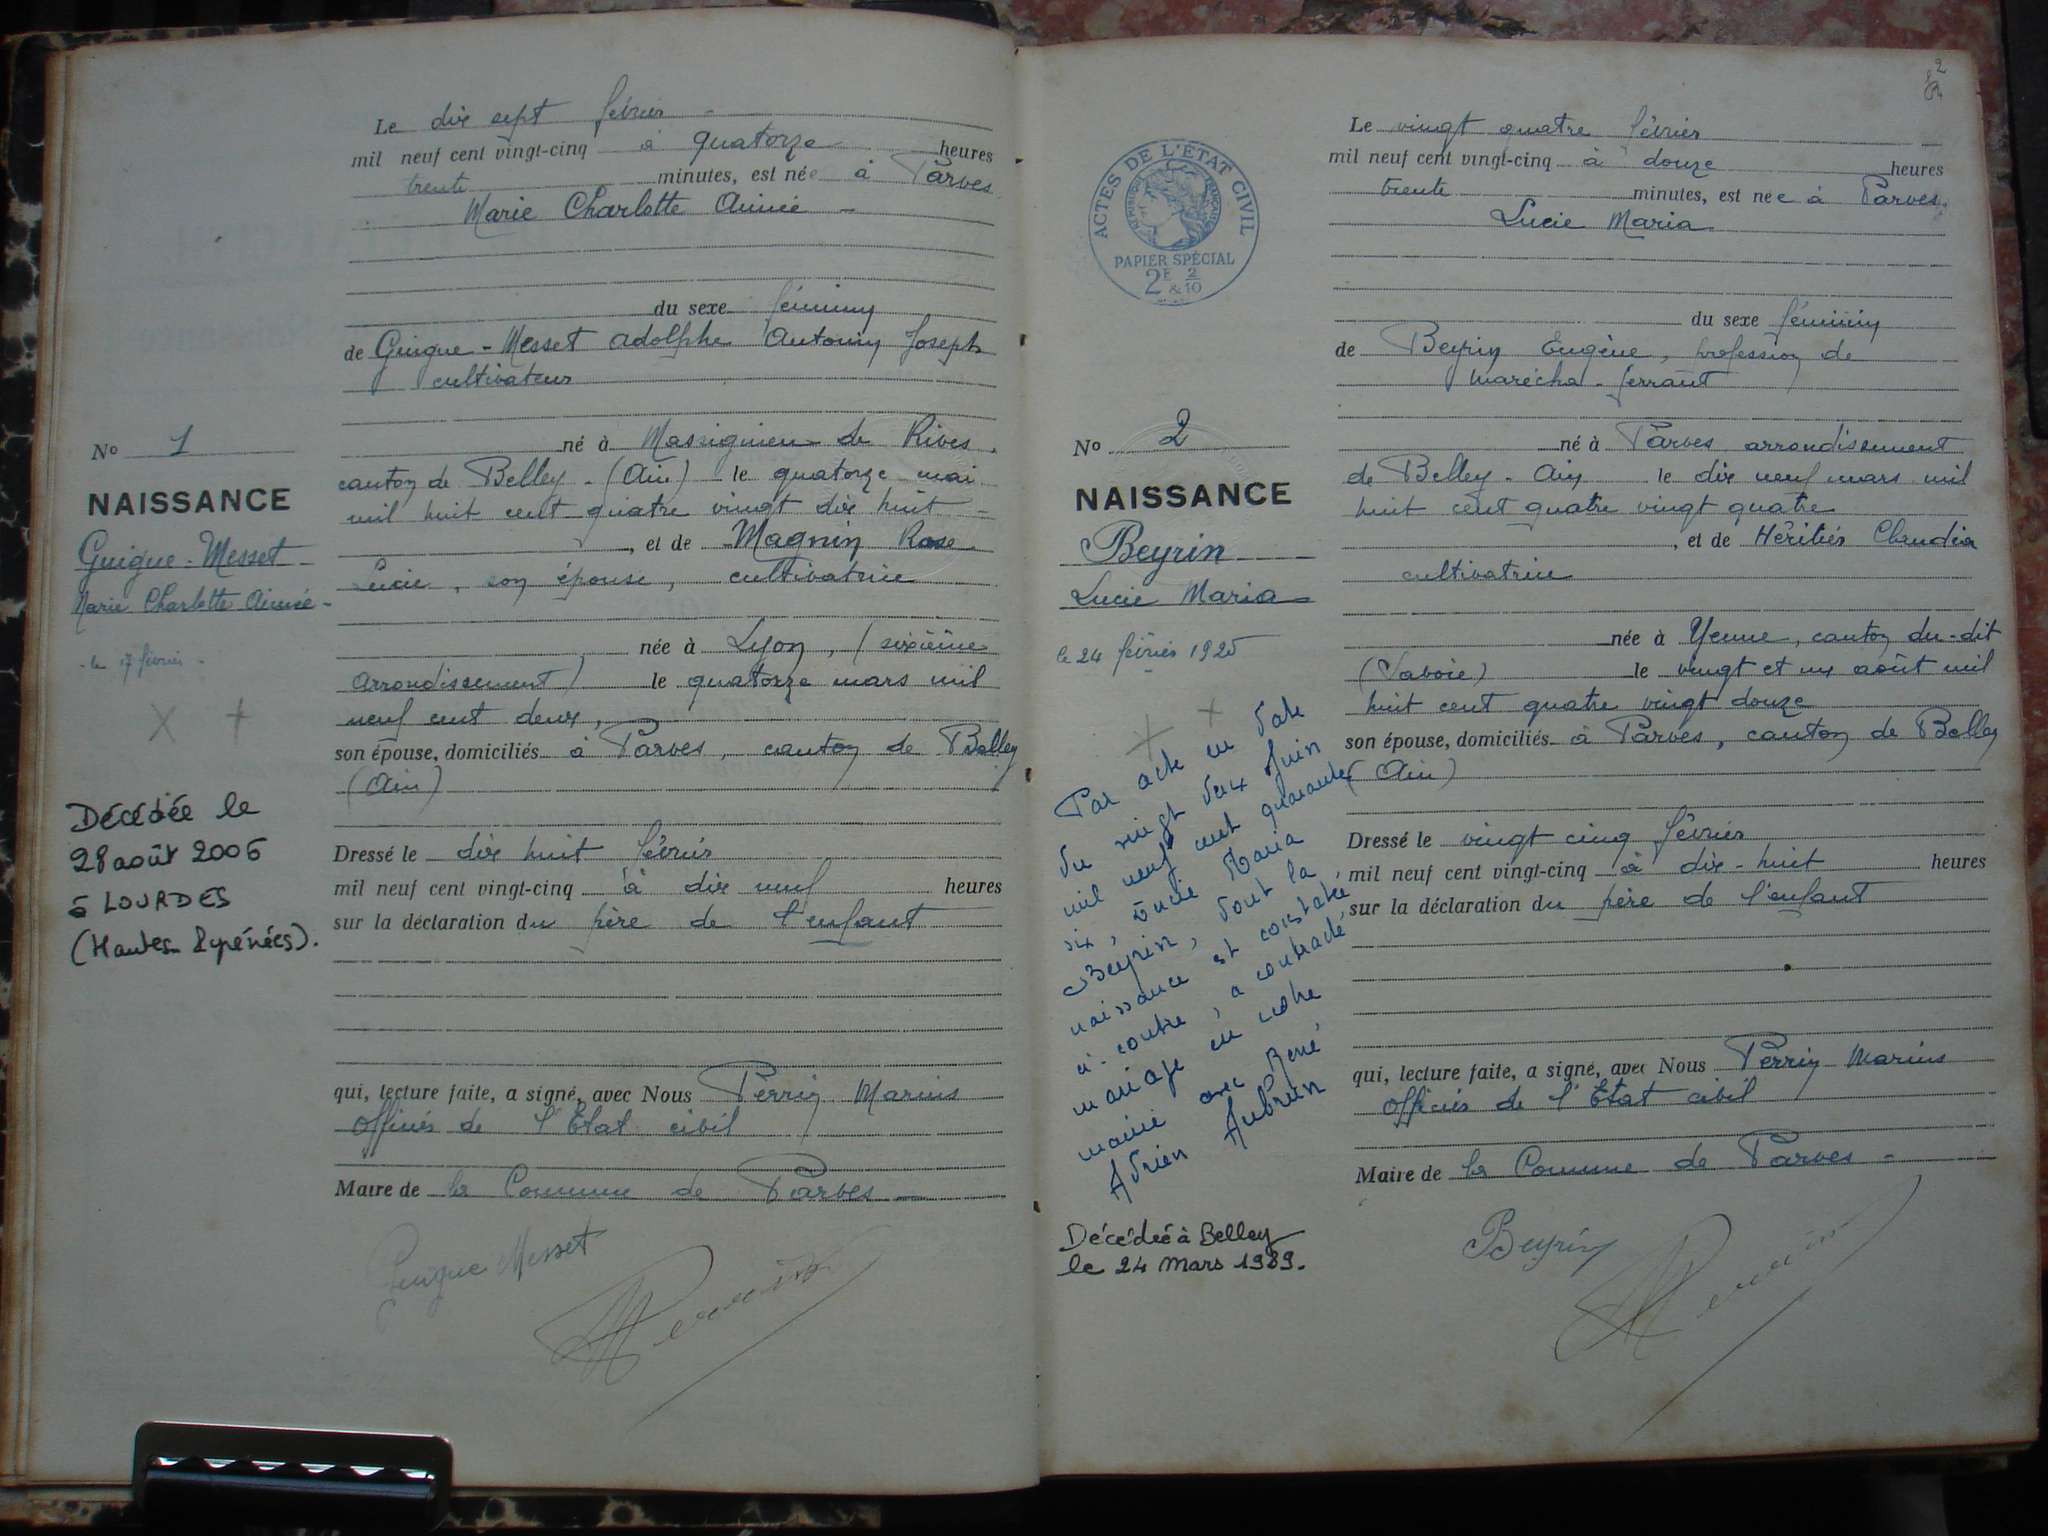 Le dix sept février -
mil neuf cent vingt-cinq à quatorze heures
trente minutes, est née à Parves
Marie Charlotte Aimée -
du sexe féminin
de Guigue-Messet Adolphe Antonin Joseph
cultivateur
né à Massignieu de Rives,
canton de Belley - (Ain) le quatorze mai
mil huit cent quatre vingt dix huit -
, et de Magnin Rose
Lucie, son épouse, cultivatrice
née à Lyon, (sixième
arrondissement) le quatorze mars mil
neuf cent deux,
son épouse, domiciliés à Parves, canton de Belley
(Ain)
Dressé le dix huit février
mil neuf cent vingt-cinq à dix neuf heures
sur la déclaration du père de l'enfant
qui, lecture faite, a signé, avec Nous Perrin Marius
officier de l'Etat civil
Maire de la Commune de Parves -
Guigue Messet
Perrin
No 1
NAISSANCE
Guigue-Messet
Marie Charlotte Aimée -
- le 17 février -
X +
Décédée le
28 août 2006
à LOURDES
(Hautes-Pyrénées).
2
Le vingt quatre février
mil neuf cent vingt-cinq à douze heures
trente minutes, est née à Parves,
Lucie Maria
du sexe féminin
de Beyrin Eugène, profession de
marécha-ferrant
né à Parves arrondissement
de Belley - Ain le dix neuf mars mil
huit cent quatre vingt quatre
, et de Héritiér Claudia
cultivatrice
née à Yenne, canton du-dit
(Savoie) le vingt et un août mil
huit cent quatre vingt douze
son épouse, domiciliés à Parves, canton de Belley
(Ain)
Dressé le vingt cinq février
mil neuf cent vingt-cinq à dix-huit heures
sur la déclaration du père de l'enfant
qui, lecture faite, a signé, avec Nous Perrin Marius
officier de l'Etat civil
Maire de la Commune de Parves -
Beyrin
Perrin
ACTES DE L'ÉTAT CIVIL
RÉPUBLIQUE FRANÇAISE
PAPIER SPÉCIAL
2F & 2/10
No 2
NAISSANCE
Beyrin
Lucie Maria
le 24 février 1925
X +
Par acte en date
du vingt deux Juin
mil neuf cent quarante
six, Lucie Maria
Beyrin, dont la
naissance est constatée
ci-contre, a contracté
mariage en notre
mairie avec René
Adrien Aubrun
Décédée à Belley
le 24 Mars 1989.